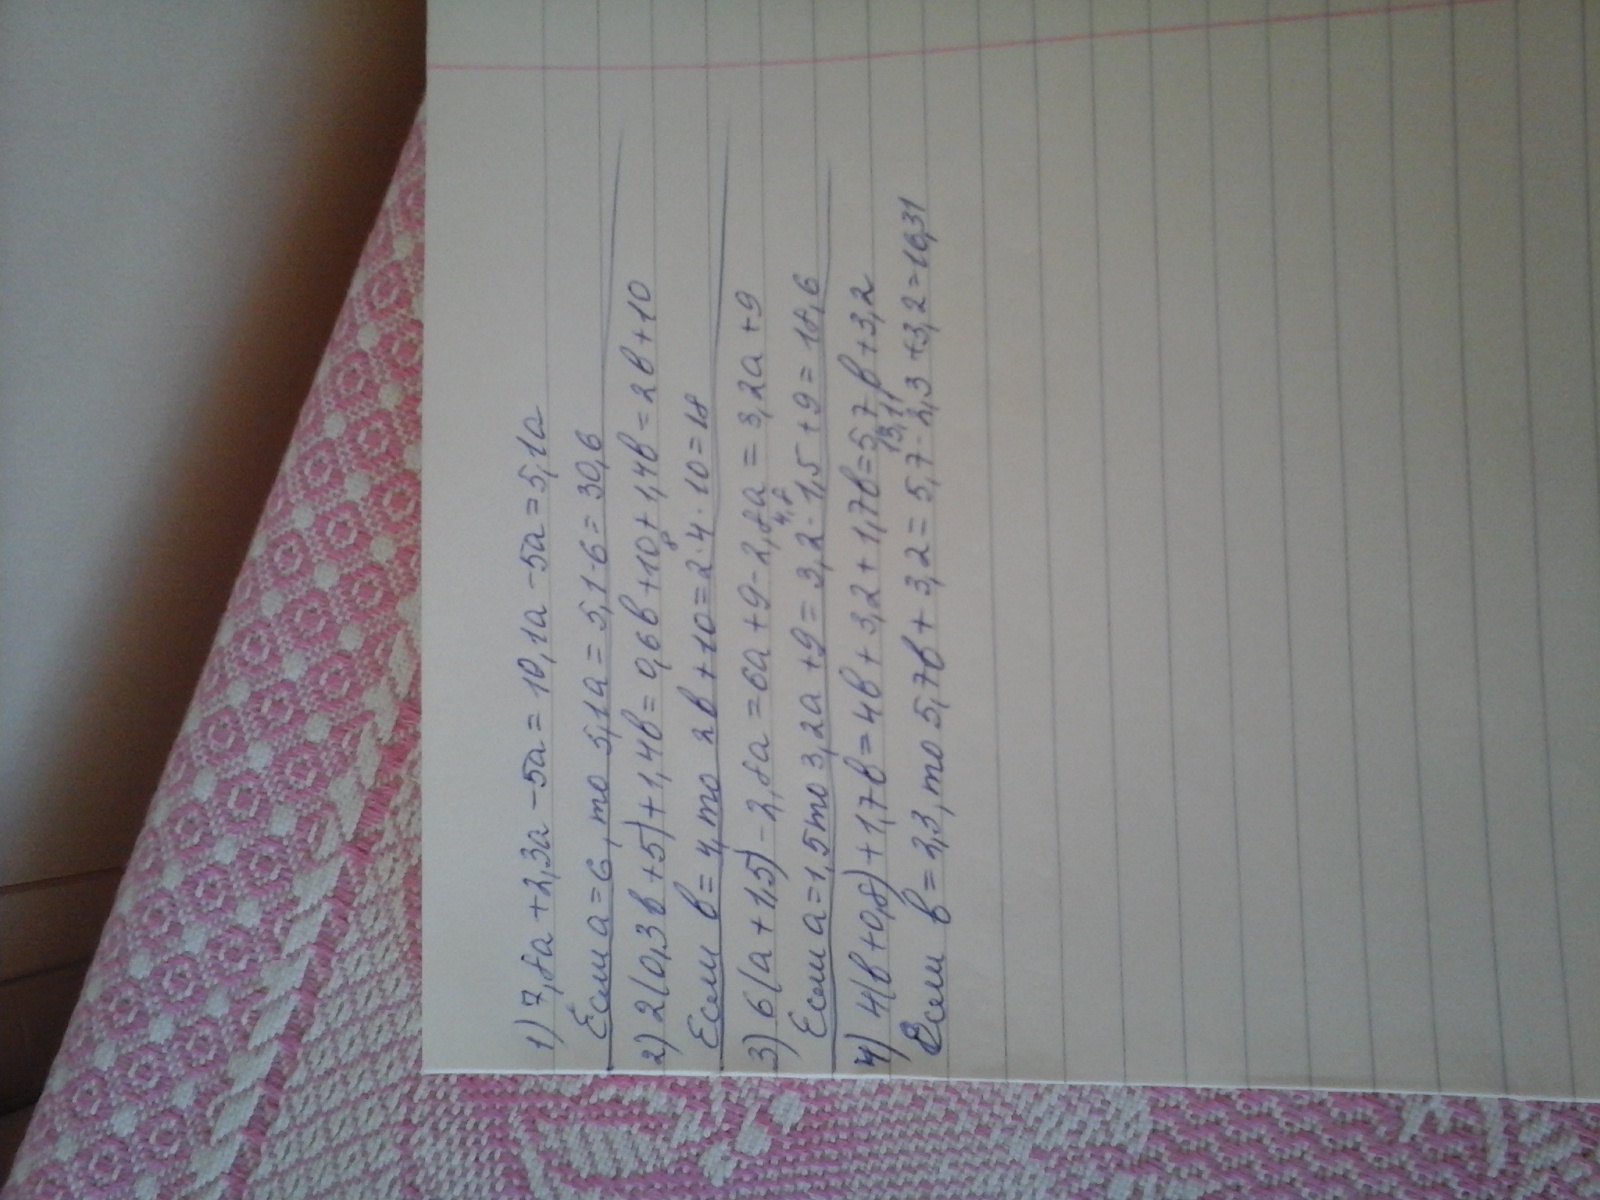 1) 7,8а + 2,3а - 5а = 10,1а - 5а = 5,1а
Если а = 6, то 5,1а = 5,1·6 = 30,6
2) 2(0,3в + 5) + 1,4в = 0,6в + 10 + 1,4в = 2в + 10
8
Если в = 4, то 2в + 10 = 2·4·10 = 18
3) 6(а + 1,5) - 2,8а = 6а + 9 - 2,8а = 3,2а + 9
4,8
Если а = 1,5 то 3,2а + 9 = 3,2·1,5 + 9 = 18,6
4) 4(в + 0,8) + 1,7в = 4в + 3,2 + 1,7в = 5,7в + 3,2
13,11
Если в = 2,3, то 5,7в + 3,2 = 5,7·2,3 + 3,2 = 16,31